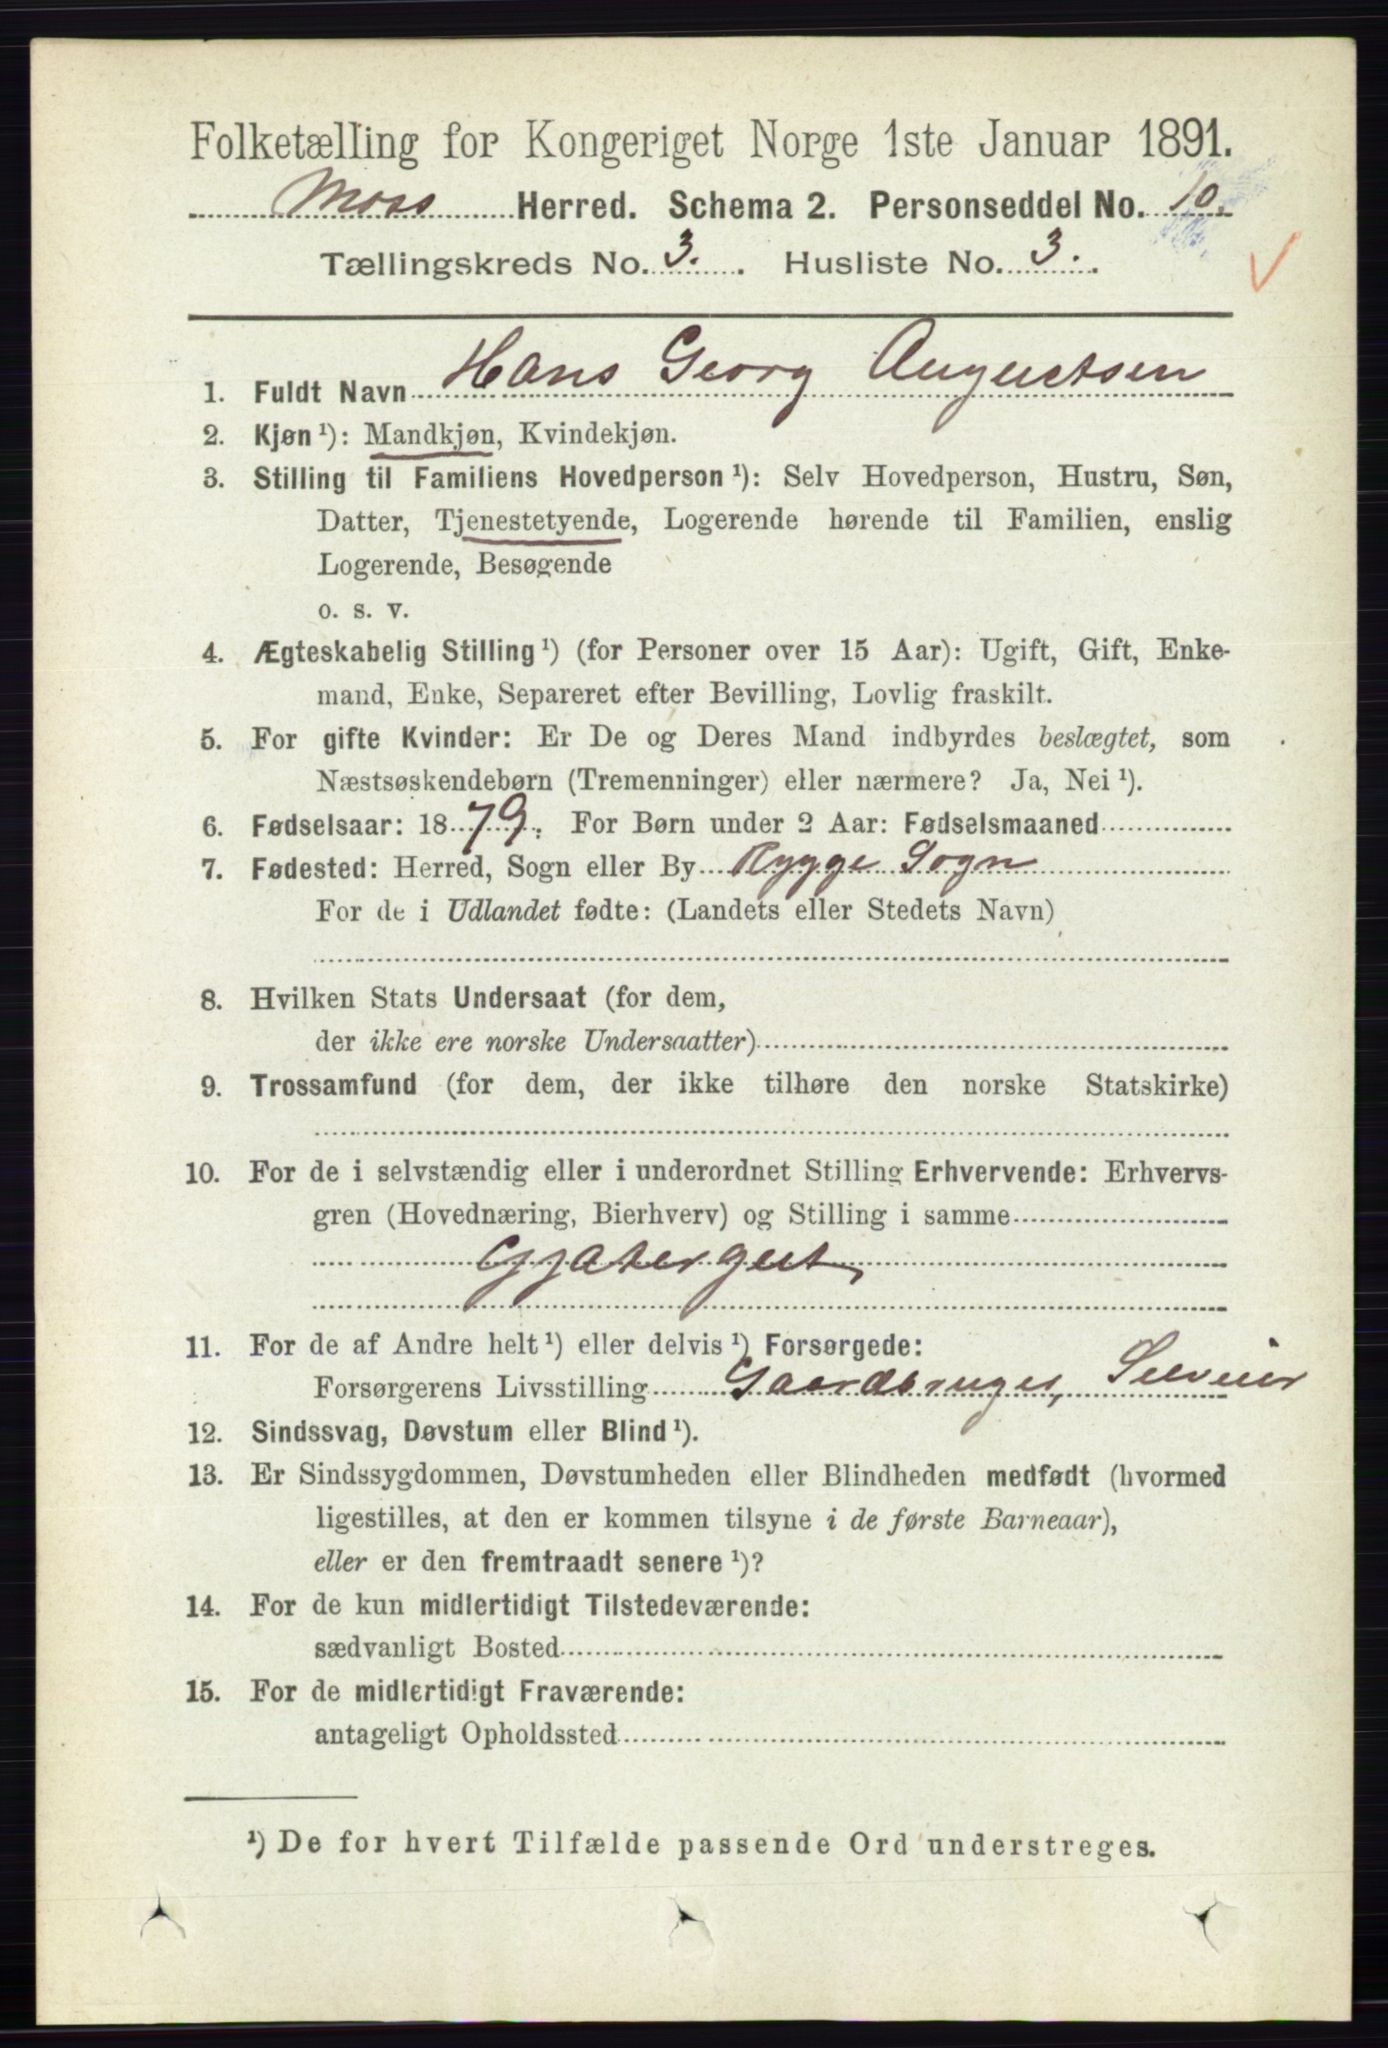 Folketælling for Kongeriget Norge 1ste Januar 1891.
Moss Herred. Schema 2. Personseddel No. 10.
Tællingskreds No. 3. Husliste No. 3.
1. Fuldt Navn Hans Georg Augustsen
2. Kjøn¹): Mandkjøn, Kvindekjøn.
3. Stilling til Familiens Hovedperson¹): Selv Hovedperson, Hustru, Søn,
Datter, Tjenestetyende, Logerende hørende til Familien, enslig
Logerende, Besøgende
o. s. v.
4. Ægteskabelig Stilling¹) (for Personer over 15 Aar): Ugift, Gift, Enke-
mand, Enke, Separeret efter Bevilling, Lovlig fraskilt.
5. For gifte Kvinder: Er De og Deres Mand indbyrdes beslægtet, som
Næstsøskendebørn (Tremenninger) eller nærmere? Ja, Nei¹).
6. Fødselsaar: 1879. For Børn under 2 Aar: Fødselsmaaned
7. Fødested: Herred, Sogn eller By Rygge Sogn
For de i Udlandet fødte: (Landets eller Stedets Navn)
8. Hvilken Stats Undersaat (for dem,
der ikke ere norske Undersaatter)
9. Trossamfund (for dem, der ikke tilhøre den norske Statskirke)
10. For de i selvstændig eller i underordnet Stilling Erhvervende: Erhvervs-
gren (Hovednæring, Bierhverv) og Stilling i samme
Gjætergut,
11. For de af Andre helt¹) eller delvis¹) Forsørgede:
Forsørgerens Livsstilling Gaardbruger, Selveier
12. Sindssvag, Døvstum eller Blind¹).
13. Er Sindssygdommen, Døvstumheden eller Blindheden medfødt (hvormed
ligestilles, at den er kommen tilsyne i de første Barneaar),
eller er den fremtraadt senere¹)?
14. For de kun midlertidigt Tilstedeværende:
sædvanligt Bosted
15. For de midlertidigt Fraværende:
antageligt Opholdssted
¹) De for hvert Tilfælde passende Ord understreges.